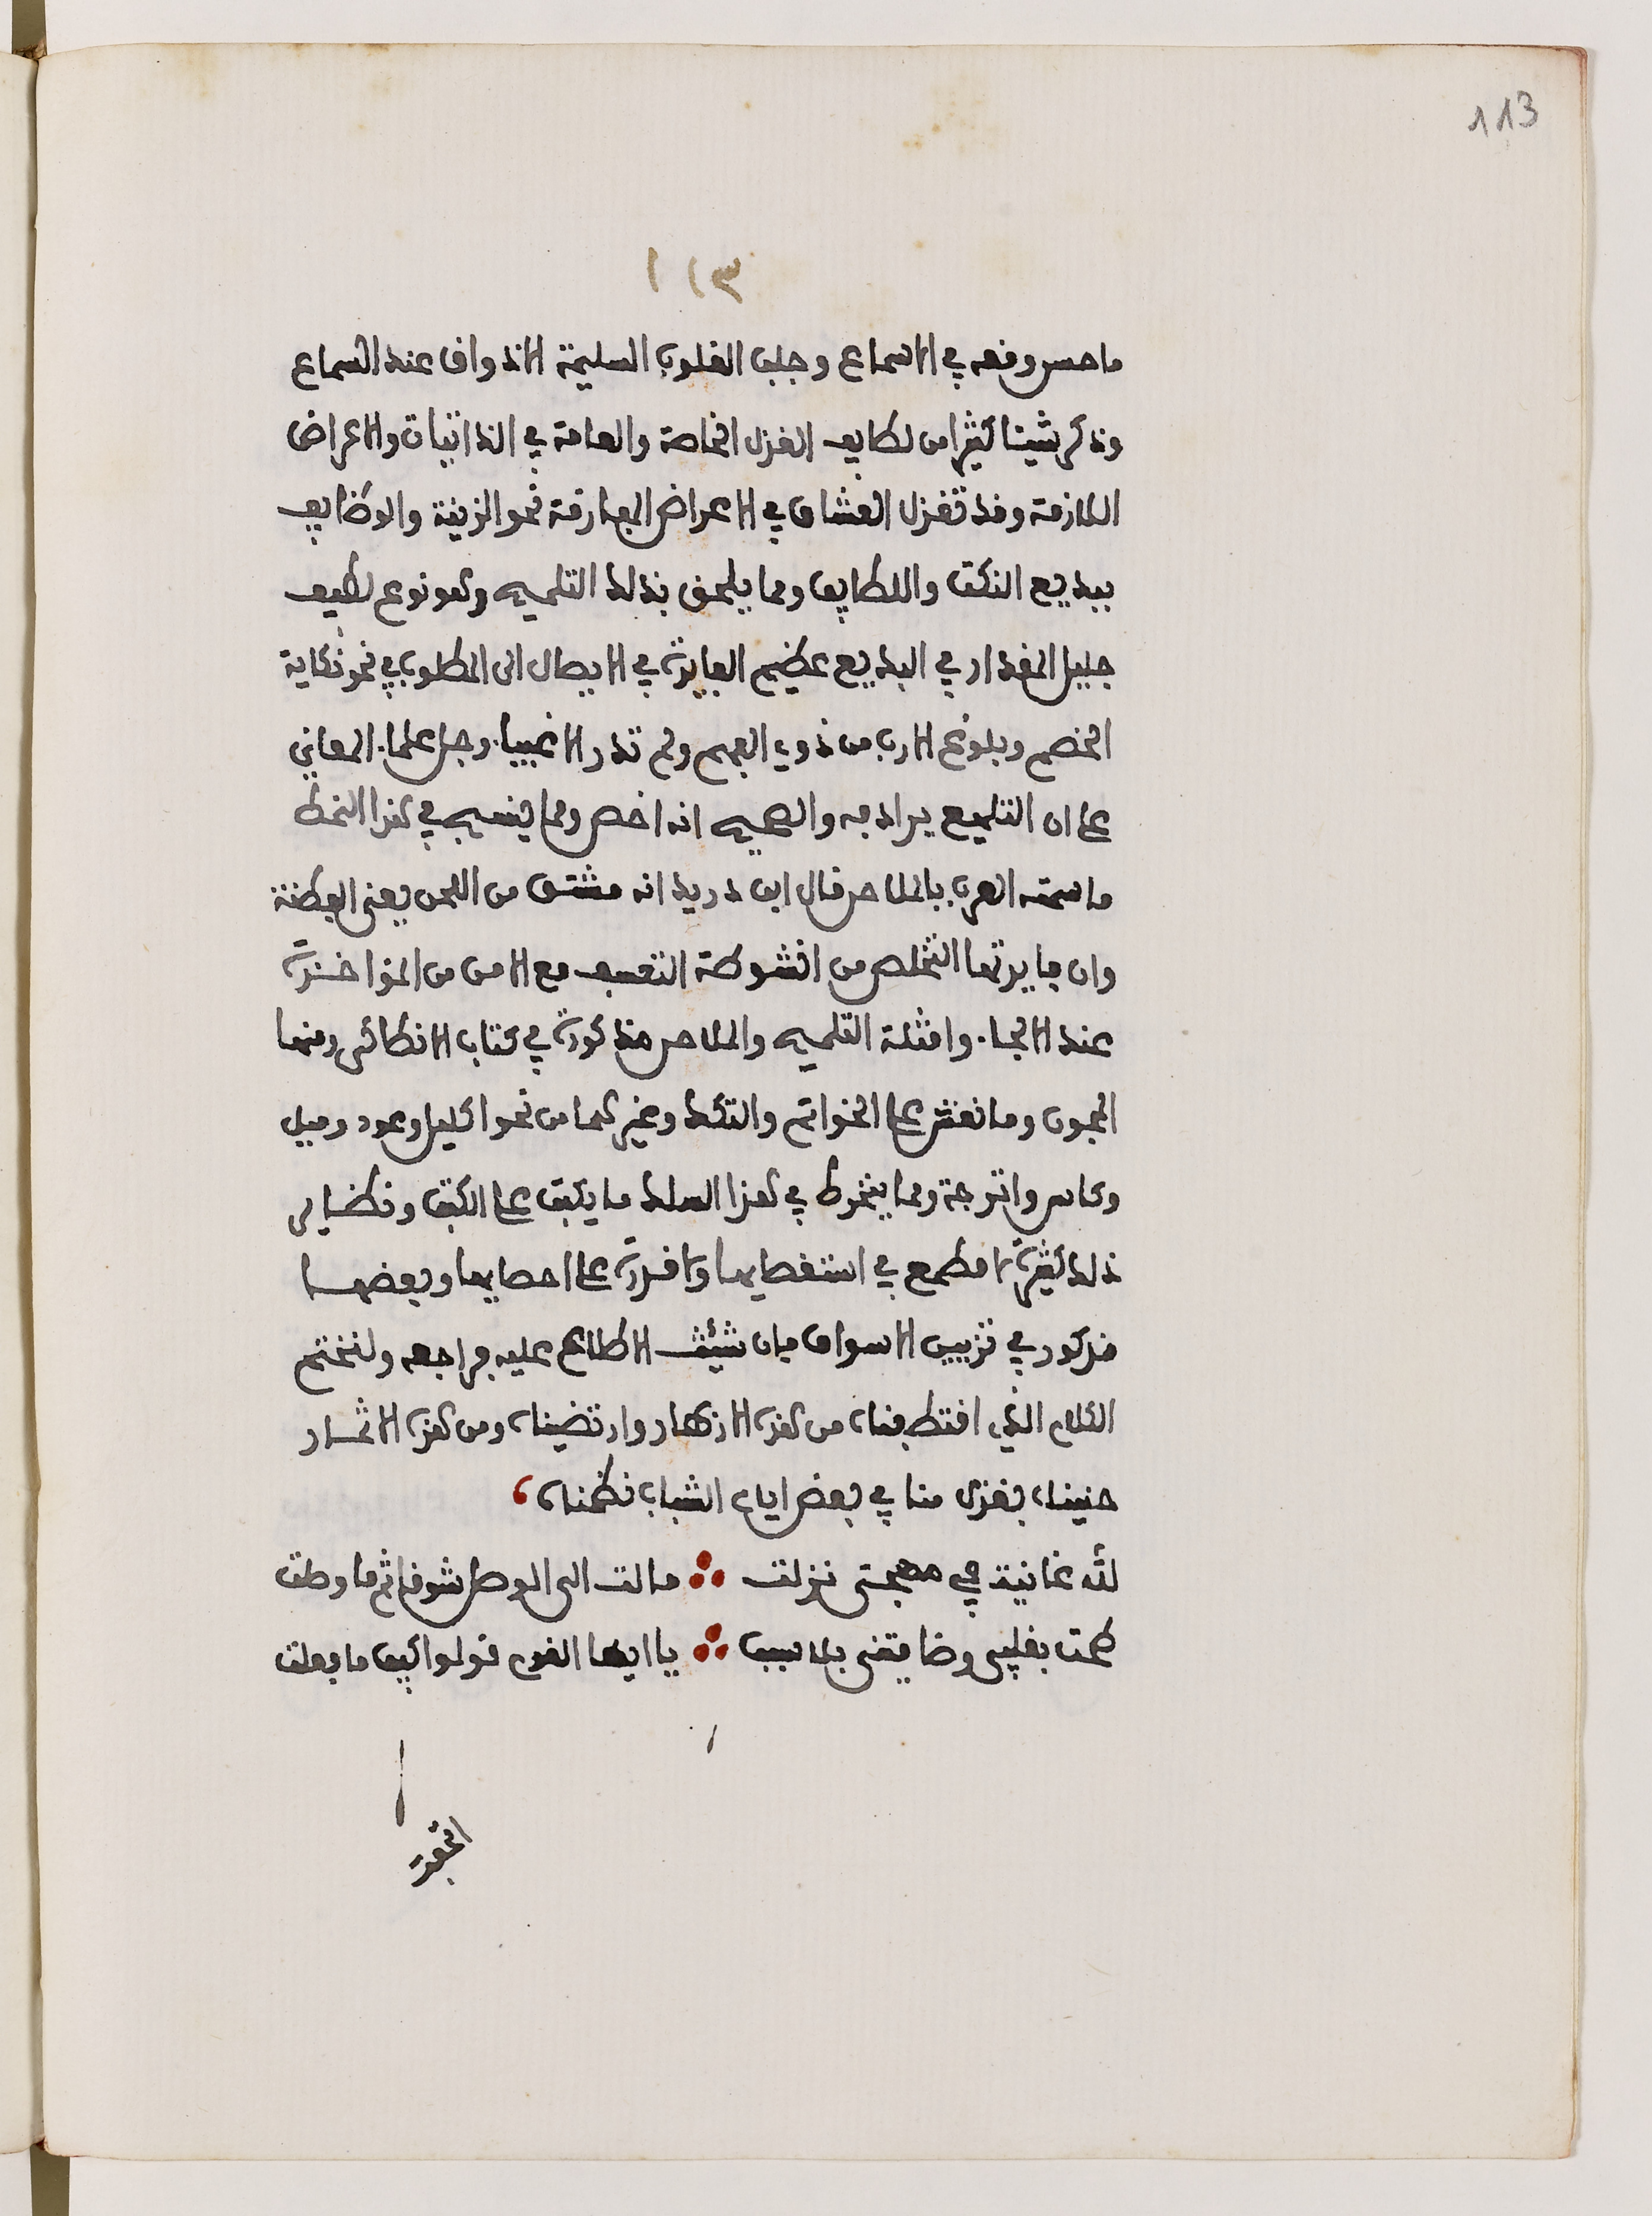 113
١١٣
ما حسن وقعه في الاسماع وجلب القلوب السليمة الاذواق عند السماع
وذكر شيئا كثيرا من لطايف الغزل الخاصة والعامة في الذاتيات والاعراض
اللازمة وقد تغزل العشاق في الاعراض المفارقة نحو الزينة والوظايف
ببديع النكت واللطايف ومما يلحق بذلك التلميح وهو نوع لطيف
جليل المقدار في البديع عظيم الفايدة في الايصال الى المطلوب في نحو نكاية
الخصم وبلوغ الارب من ذوي الفهم ولم تدر الاغبيا. وجل علما. المعاني
على ان التلميح يرادفه والصحيح انه اخص ومما ينسج في هذا النمط
ما سمته العرب بالملاحن قال ابن دريد انه مشتق من اللحن يعني الفطنة
وان فايدتها التخلص من انشوطة التعسف مع الامن من المواخذة
عند الالجا. وامثلة التلميح والملاحن مذكورة في كتاب الانطاكي ومنها
المجون وما نقش على الخواتم والتكك وغيرهما من نحو اكليل وعود وميل
وكاس واترجة ومما ينخرط في هذا السلك ما يكتب على الكتب ونظاير
ذلك كثيرة لا مطمع في استقصايها ولا قدرة على احصايها وبعضها
مذكور في تزيين الاسواق فان شئت الاطلاع عليه فراجعه ولنختم
الكلام الذي اقتطفناه من هذه الازهار وارتضيناه ومن هذه الاثمار
جنيناه بغزل منا في بعض ايام الشباب نظمناه،
لله غانية في مهجتي نزلت ∴ مالت الى الوصل شوقا ثم ما وصلت
همت بقلبي وضايقتني بلا سبب ∴ يا ايها القوم قولوا كيف ما فعلت